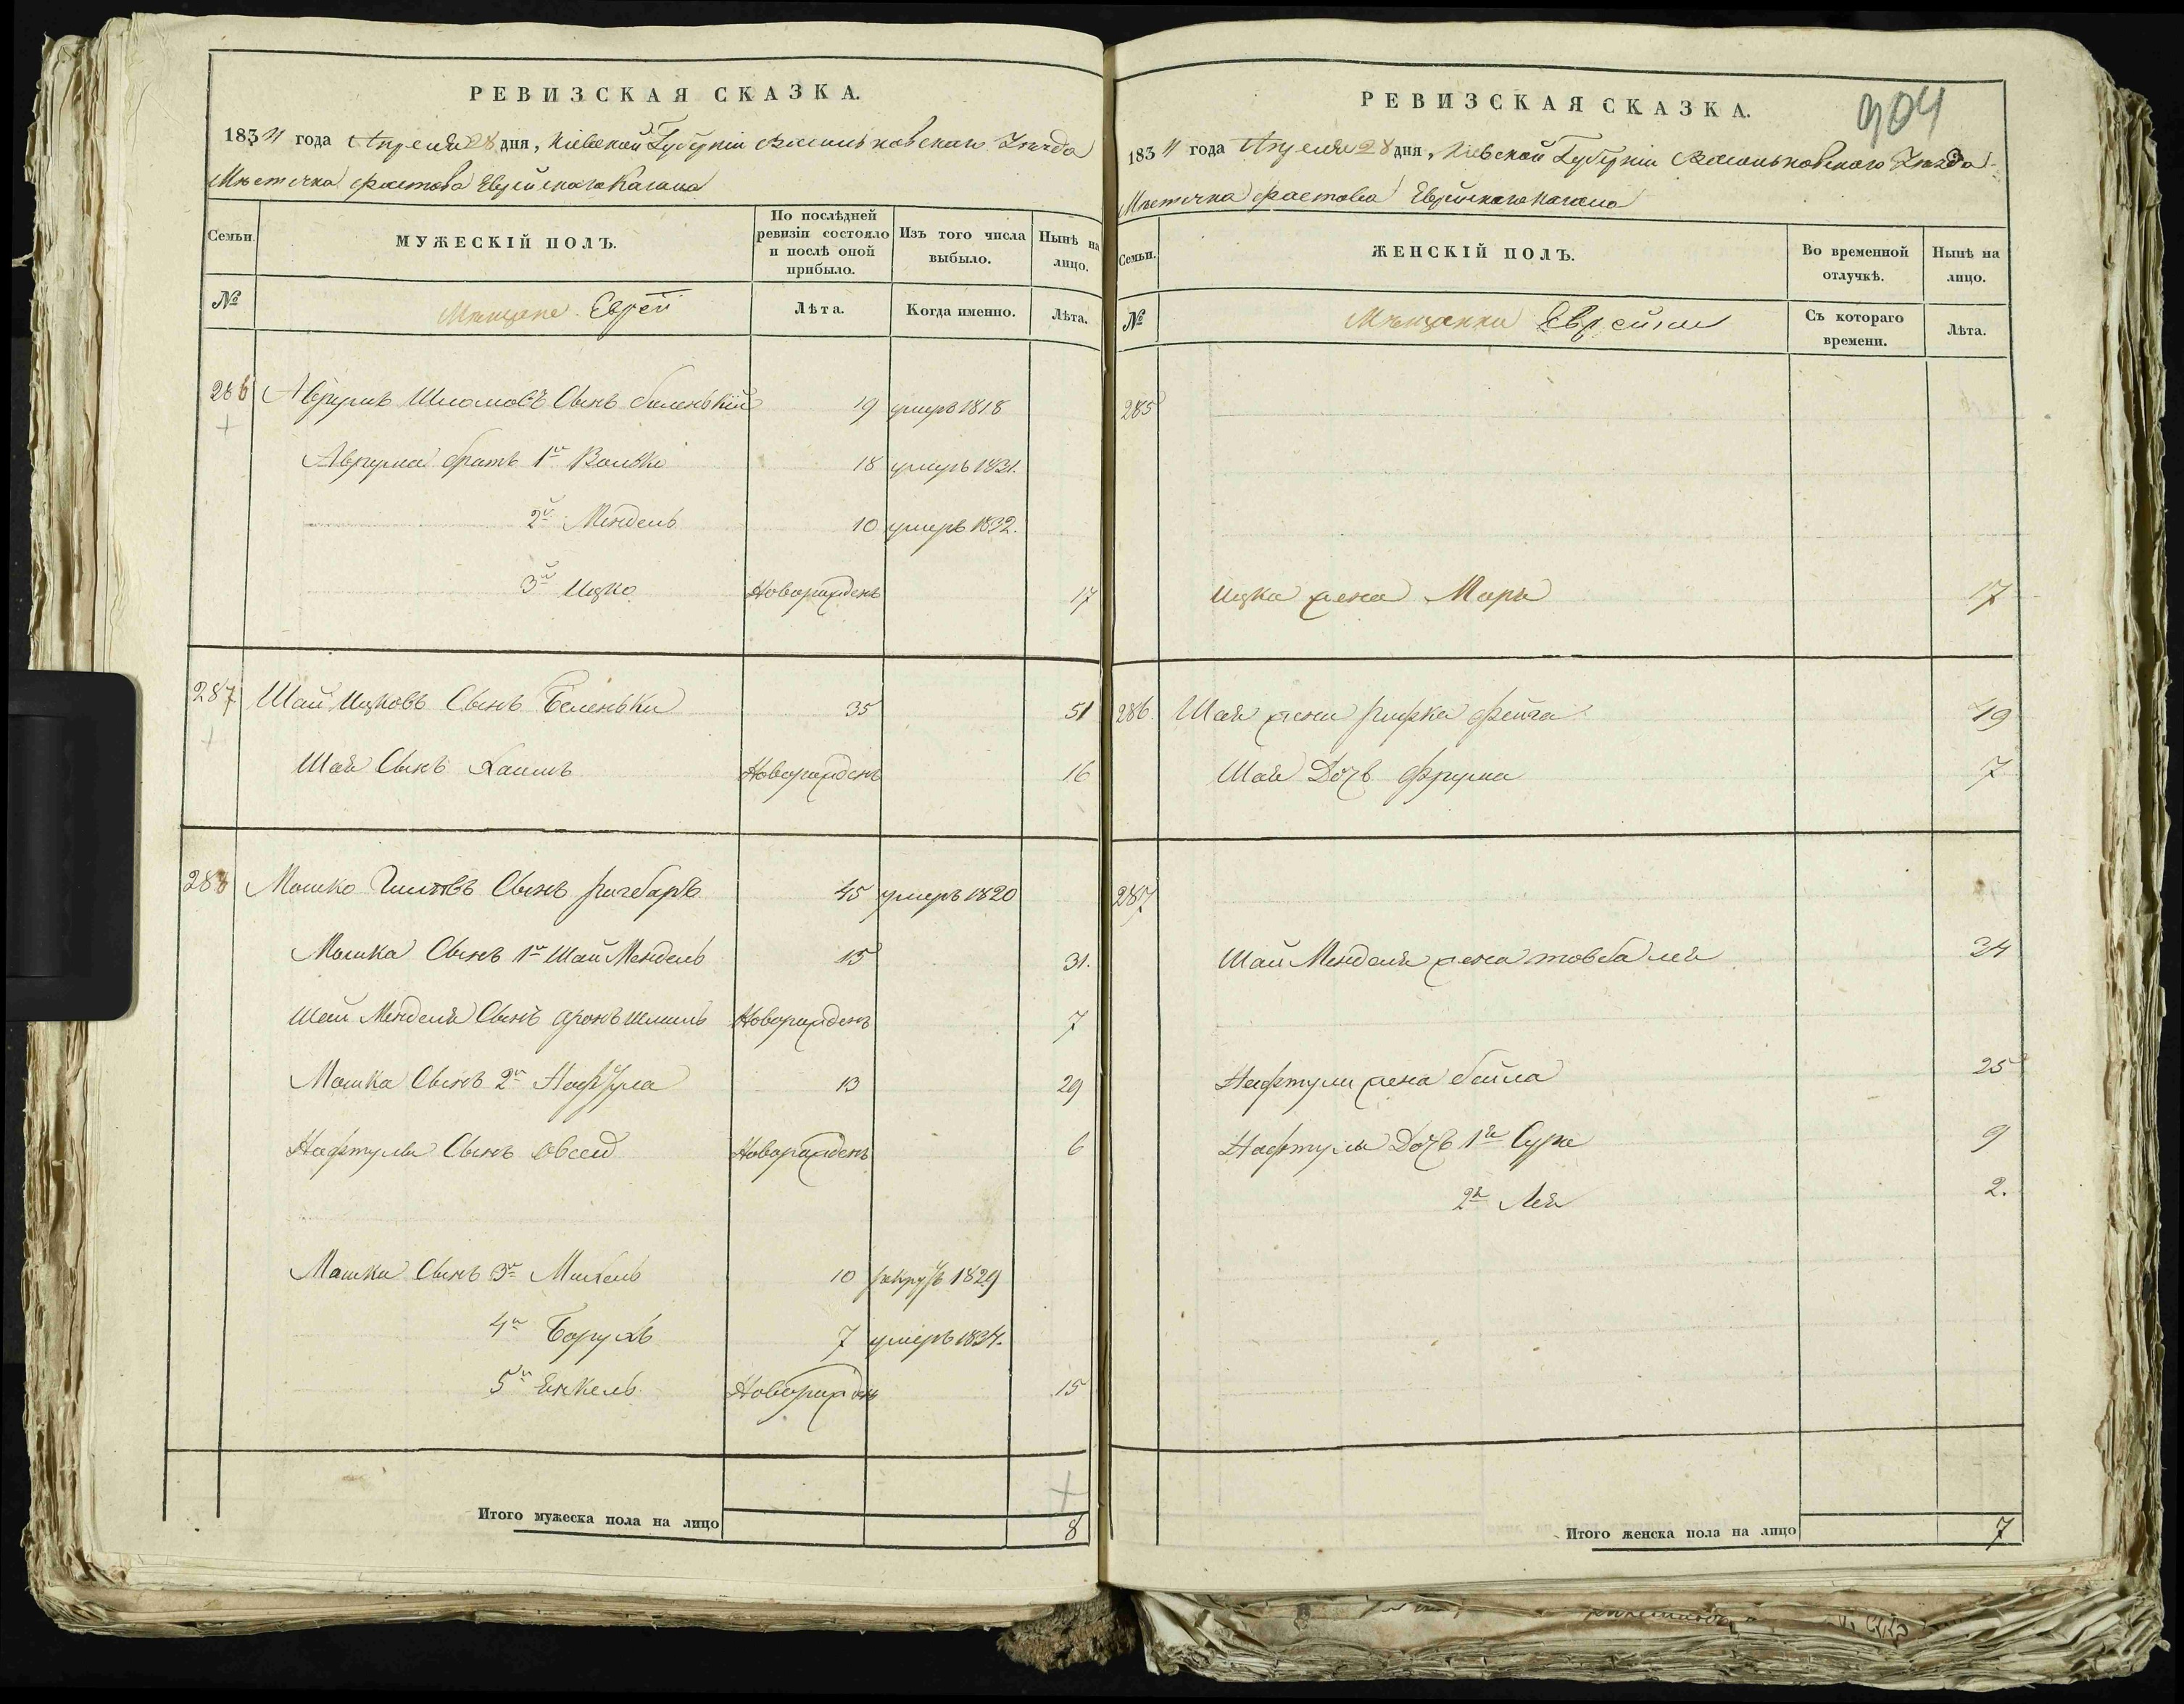 РЕВИЗСКАЯ СКАЗКА.
1834 года Апреля 28 дня, Кіевской Губерніи Васильковского Уезда
Мѣстечка Фастова Еврейскаго Кагала
Семьи.
МУЖЕСКІЙ ПОЛЪ.
По послѣдней ревизіи состояло и послѣ оной прибыло.
Изъ того числа выбыло.
Нынѣ на лицо.
№
Мещане Еврей
Лѣта.
Когда именно.
Лѣта.
286 Аврумъ Шломовъ Сынъ беленькій 19 умеръ 1818
Аврума братъ 1й Волько 18 умеръ 1831.
2й Мендель 10 умеръ 1832.
3й Ицко Новорожденъ 17
287 Шай Ицковъ Сынъ Беленьки 35 51
Шаи Сынъ Хаимъ Новорожденъ 16
288 Мошко Сынъ 45 умеръ 1820
Мошка Сынъ 1й Шай Мендель 15 31.
Шаи Менделя Сынъ Аронъ Шмиль Новорожденъ 7
Мошка Сынъ 2й Нафтула 13 29
Нафтулы Сынъ Овсей Новорожденъ 6
Мошки Сынъ 3й Михель 10 рекрутъ 1829
4й Борухъ 7 умеръ 1834.
5й Енкель Новорожденъ 15
Итого мужеска пола на лицо 8
РЕВИЗСКАЯ СКАЗКА.
904
1834 года Апреля 28 дня, Кіевской Губерніи Васильковского Уезда
Мѣстечка Фастова Еврейскаго Кагала
Семьи.
ЖЕНСКІЙ ПОЛЪ.
Во временной отлучкѣ.
Нынѣ на лицо.
№
Мѣщанки Еврейки
Съ котораго времени.
Лѣта.
285
Ицка жена Мара 17
286 Шаи жена Рифка Фейга 49
Шаи Дочь Фрума 7
287
Шаи Менделя жена Товба Лея 24
Нафтули жена бейла 25
Нафтулы Дочь 1я Сура 9
2я Лея 2.
Итого женска пола на лицо 7